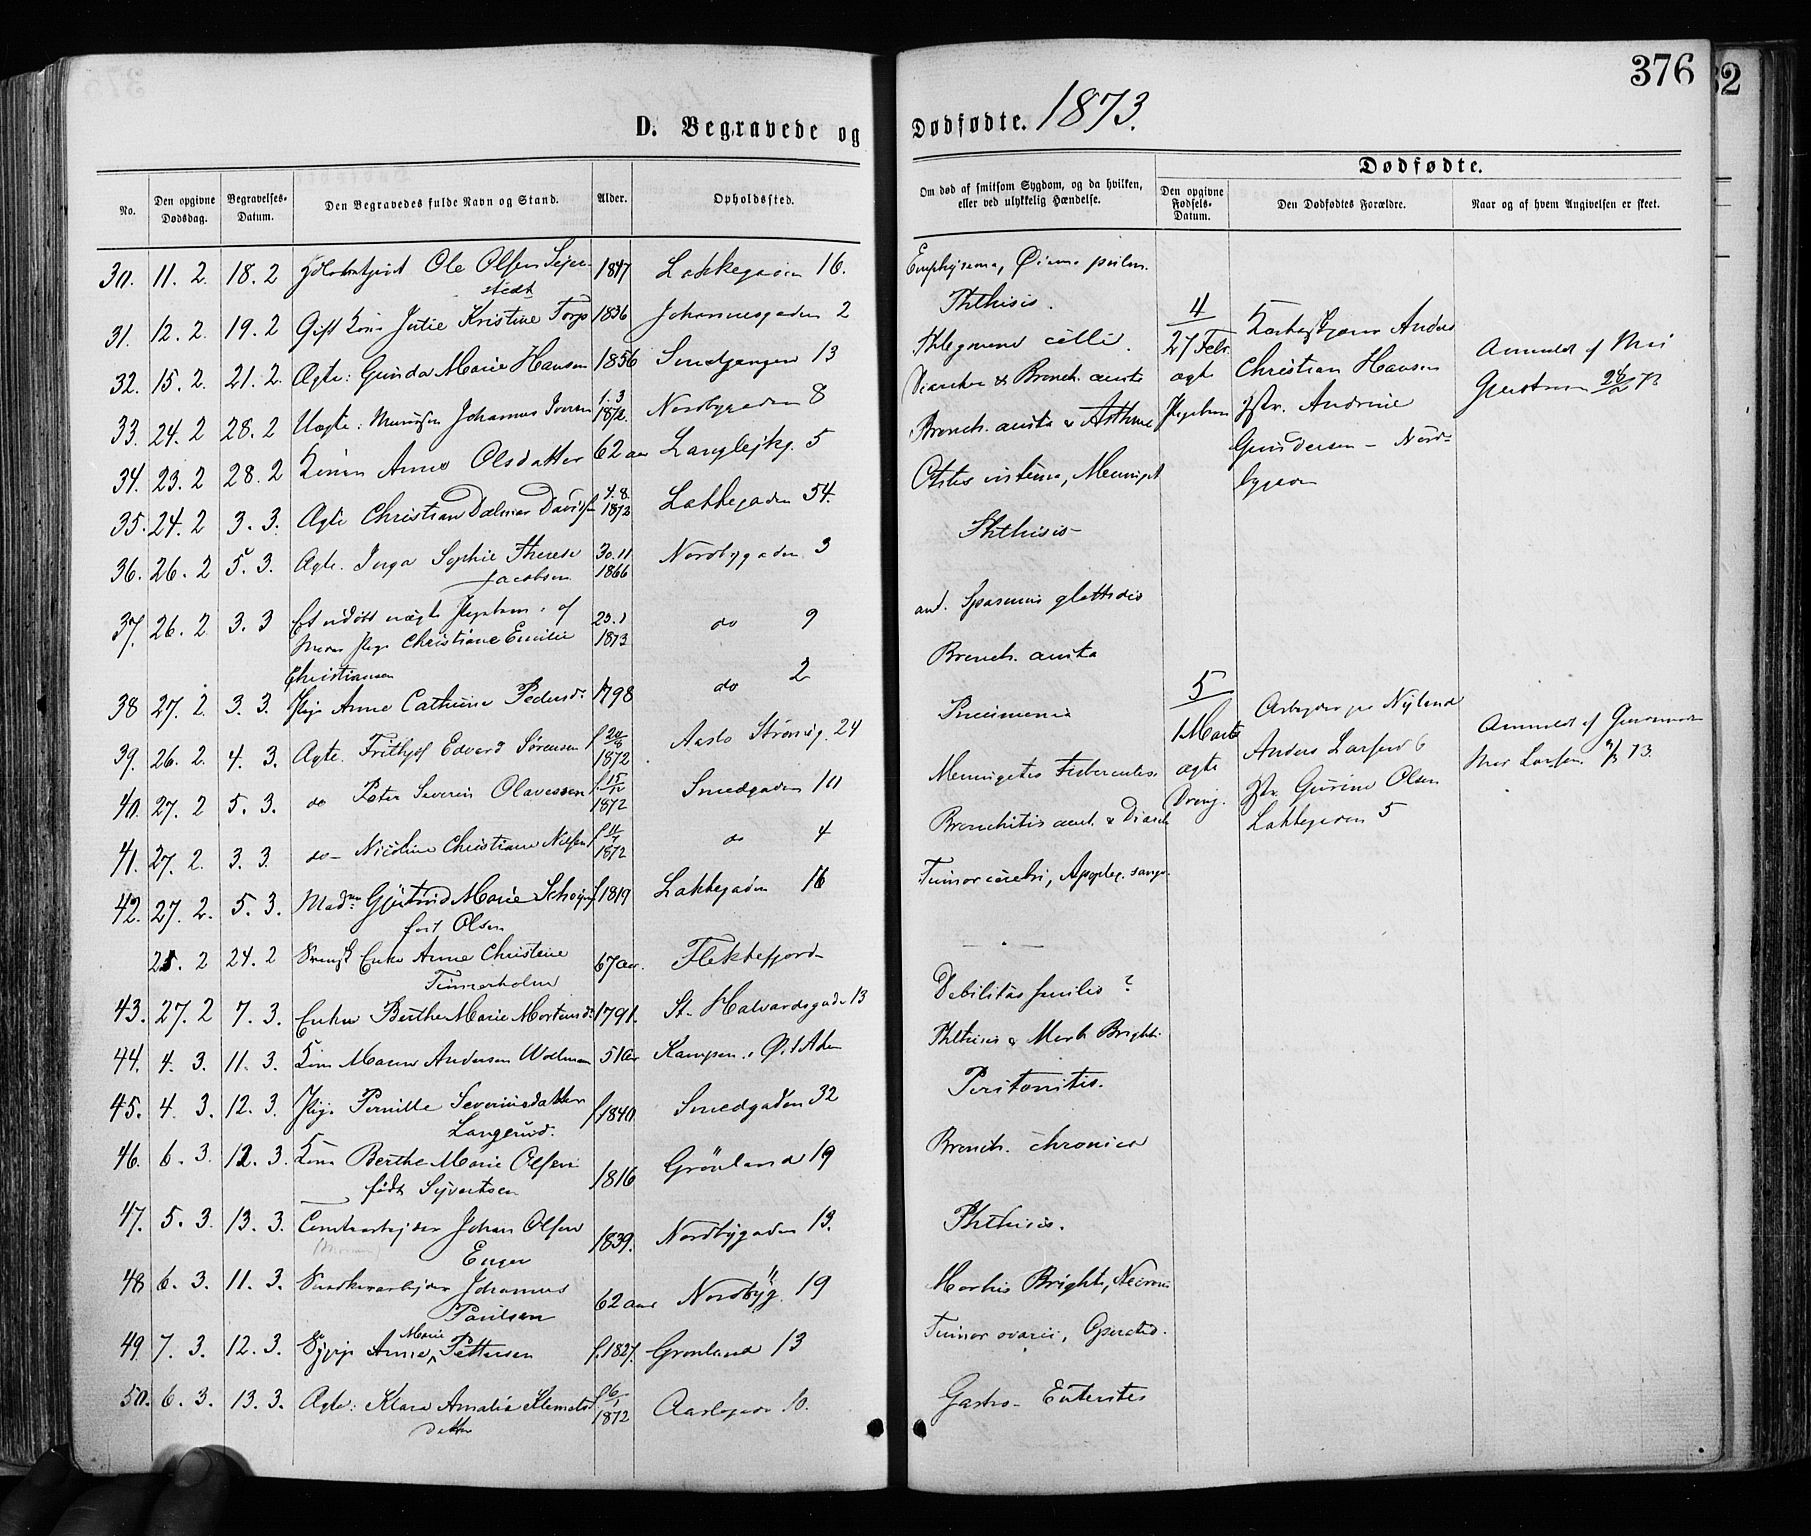 376
32
D. Begravede og Dødfødte. 1873.
No.
Den opgivne Dødsdag.
Begravelses-Datum.
Den Begravedes fulde Navn og Stand.
Alder.
Opholdssted.
Om død af smitsom Sygdom, og da hvilken, eller ved ulykkelig Hændelse.
Dødfødte.
Den opgivne Fødsels-Datum.
Den Dødfødtes Forældre.
Naar og af hvem Angivelsen er skeet.
30. 11. 2. 18. 2 Ole Olsen 1847 Lakkegaden 16. Emphysema, pulm.
stedt
31. 12. 2. 19. 2 Gift Kone Julie Kristine Torp 1836 Johannesgaden 2 Phthisis.
32. 15. 2. 21. 2. Ægte: Gunda Marie Hansen 1856 Smedgangen 13 Phlegmone colli.
33. 24. 2 28. 2 Uægte: Johannes Iversen 1.3 1872. Nordbygaden 8 Diarrhe & Bronch. acuta
34. 23. 2 28. 2 Konen Anne Olsdatter 62 aar Langlejkg. 5 Bronch. acuta & Asthma
35. 24. 2 3. 3. Ægte Christian Davidsen 4.8. 1872 Lakkegaden 54. Otitis interna, Meningit
36. 26. 2 5. 3. Ægte. Inga Sophie Therese 30.11 1866 Nordbygaden 3 Phthisis
Jacobsen
37. 26. 2 3. 3 Et udøbt uægte Pigebarn af 1873 do 9 Spasmus glottidis
Pige Christiane Emilie
Christiansen
38 27. 2. 3. 3. Pige Anne Cathrine Pedersd. 1798 do 2 Bronch. acuta
39. 26. 2 4. 3. Ægte. Frithjof Edvard Sørensen f 20/8 1872 Aaslo Strømsv. 24 Pneumonia
40. 27. 2 5. 3. do Peter Severin Olavessen f. 15/12 1872 Smedgaden 10 Meningitis Tubercules.
41. 27. 2. 3. 3. do Nicoline Christiane Nilsen 1872 do 4 Bronchitis acut. & Diarrh
42. 27. 2. 5. 3. Mad. Gjertrud Marie f 1819 Lakkegaden 16 Tumor cerebri, Apoplex. sangv.
født Olsen
25. 2 24. 2 Svensk Enke Anne Christine 67 aar. Flekkefjord
Timmerholm
43. 27. 2 7. 3. Enke Berthe Marie Mortensd. 1791. St. Halvardsgade 13 Debilitas senilis?
44. 4. 3. 11. 3. Andersen 51 aar Kampen. Ø. Aker Phthisis & Morb. Brighti
45. 4. 3. 12. 3. Pige Pernille Severinsdatter f. 1840 Smedgaden 32 Peritonitis.
Langerud.
46. 6. 3. 12. 3. Kone Berthe Marie Olsen 1816 Grönland 19 Bronch. chronica
født Syvertsen
47. 5. 3. 13. 3. Johan Olsen 1839. Nordbygaden 13. Phthisis.
Enger
48 6. 3. 11. 3. Johannes 62 aar Nordbyg. 19 Morbus Brighti,
Paulsen
49. 7. 3. 12. 3. Sypige Anne Marie Pettersen f. 1827. Grønland 13 Tumor ovarii, Operated.
50. 6. 3. 13. 3. Ægte: Klara Amalia Klemets- f 6/1 1872 10. Gastro-Enterites
datter
4
27 Febr.
ægte
Pigebarn
Anders
Christian Hansen
Hstr. Andrine
Gundersen – Nord-
bygaden
Anmeldt af
5
1 Marts
ægte
Dreng.
Arbejder paa Nyland
Anders Larsen &
Hstr. Gurine Olsen
Lakkegaden 5
Anmeldt af
Larsen 73.